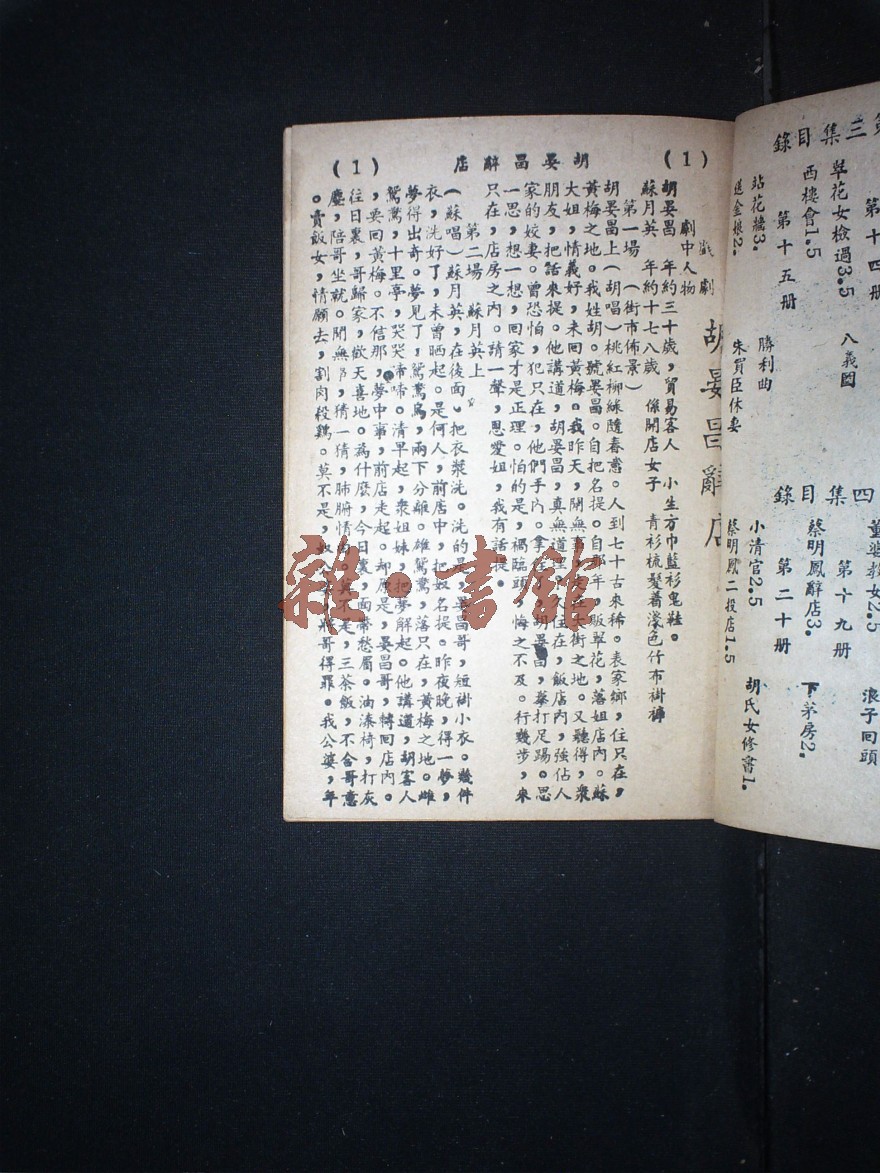 第三集目錄
第十四册
翠花女檢過3.5
八義圖
西樓會1.5
第十五册
勝利曲
站花牆3.
朱買臣休妻
送金娘2.
四集目錄
董婆殺女2.5
浪子回頭
第十九册
蔡明鳳辭店3.
下茅房2.
第二十册
小清官2.5
胡氏女修書1.
蔡明鳳二投店1.5
(1)
胡晏昌辭店
(1)
戲劇 胡晏昌辭店
劇中人物
胡晏昌 年約三十歲,貿易客人 小生方巾藍衫鬼鞋。
蘇月英 年約十七八歲 係開店女子 青衫梳髮着淺色竹布褂褲
第一場 (街市佈景)
胡晏昌上(胡唱)桃紅柳綠隨春當。人到七十古來稀。表家鄉,住只在,
黃梅之地。我姓胡。號晏昌。自把名提。自那年,販翠花,落姐店內。蘇
大姐,情義好,未回黃梅。我昨天,閒無事,大街之地。又聽得,衆
朋友,把話來提。他講道,胡晏昌,真無道理。人住在,飯店內,強佔人
家的姣妻。曾恐怕,犯只在,他們手內。拿住了,胡晏昌,拳打足踢。思
一思,想一想,回家才是正理。怕的是,禍臨頭,悔之不及。行幾步,來
只在,店房之內。請一聲,恩愛姐,我有話提。
第二場 蘇月英上
(蘇唱)蘇月英,在後面,把衣漿洗。洗的是,晏昌哥,短褂小衣。幾件
衣,洗好了,未曾晒起。是何人,前店中,把奴名提。昨夜晚,得一夢,
夢得出奇。夢見了,鴛鴦鳥,兩下分離。雄鴛鴦,落只在,黃梅之地。雌
鴛鴦,十里亭,哭哭啼啼。清早起,衆姐妹,把夢解起。他講道,胡客人
,要回黃梅。不信那,夢中事,前店走起。却原是,晏昌哥,轉回店內。
往日裏,哥歸家,歡天喜地。為什麼,今日裏,面帶愁眉。油漆椅,打灰
塵,陪哥坐就。閒無事,猜一猜,肺腑情由。莫不是,三茶飯,不合哥意
。賣飯女,情願去,割肉殺鷄。莫不是,奴公婆,將哥得罪。我公婆,年